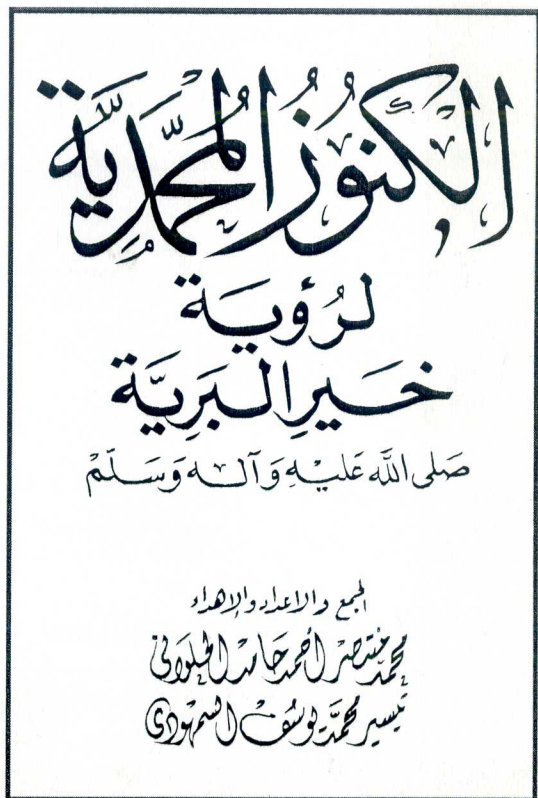 الكُنُوزُ المُحَمَّدِيَّة
لرُؤيَة
خَيرِ البَرِيَّة
صَلى اللَّه عَليْهِ وَآلهِ وَسَلَّمْ
الجمع والاعداد والإهداء
محمد منتصر أحمد حامد الحلواني
تيسير محمد يوسف السمهودي